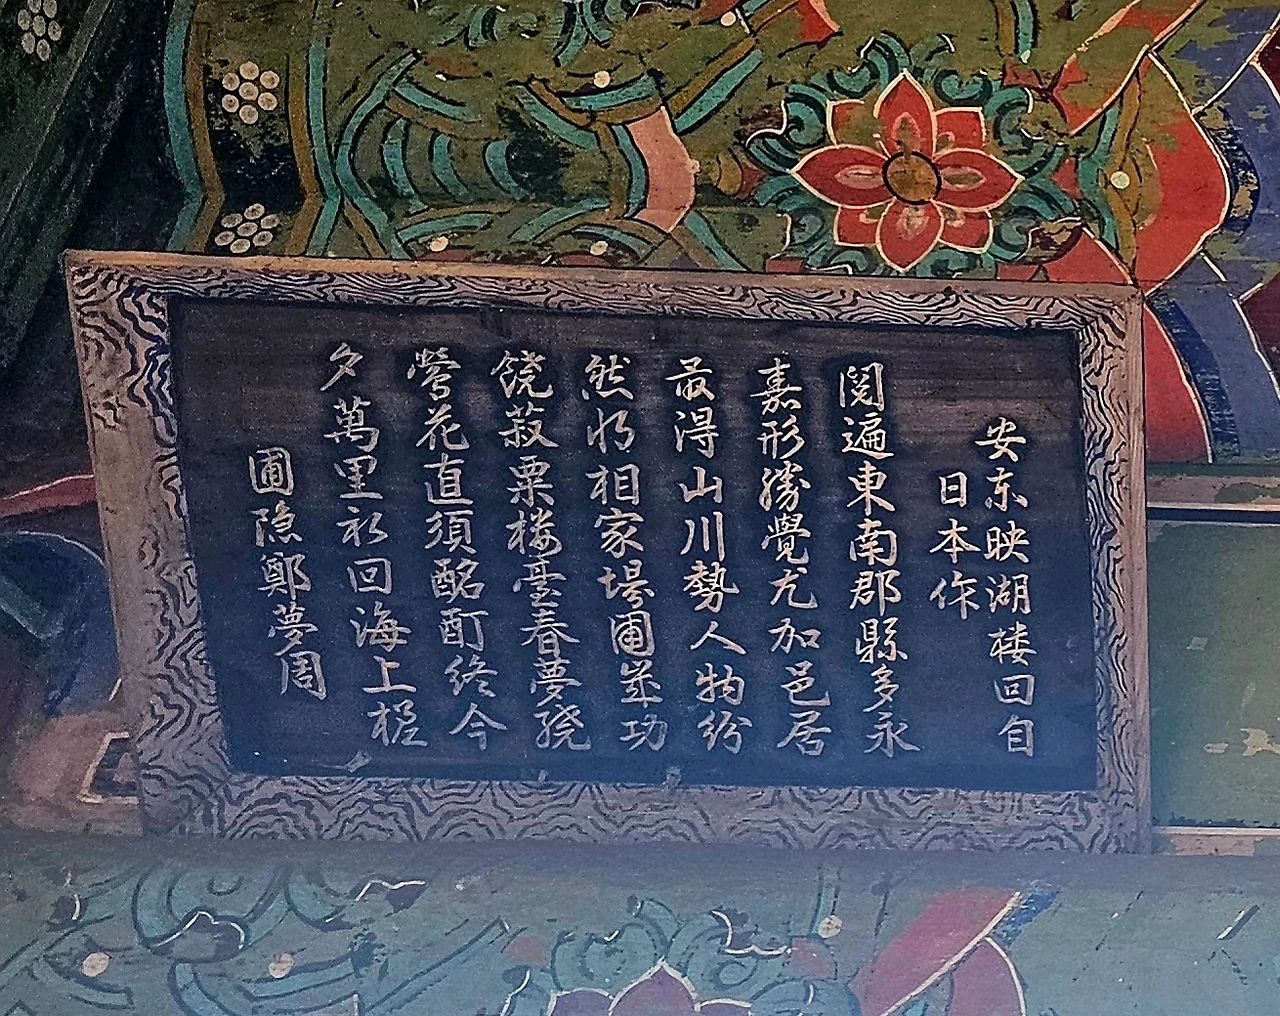 安東映湖楼回自
日本作
閱遍東南郡縣多永
嘉形勝覺尤加邑居
最得山川勢人物紛
然將相家場圃歲功
饒菽粟楼臺春夢繞
鶯花直須酩酊終今
夕萬里初回海上槎
圃隐鄭夢周